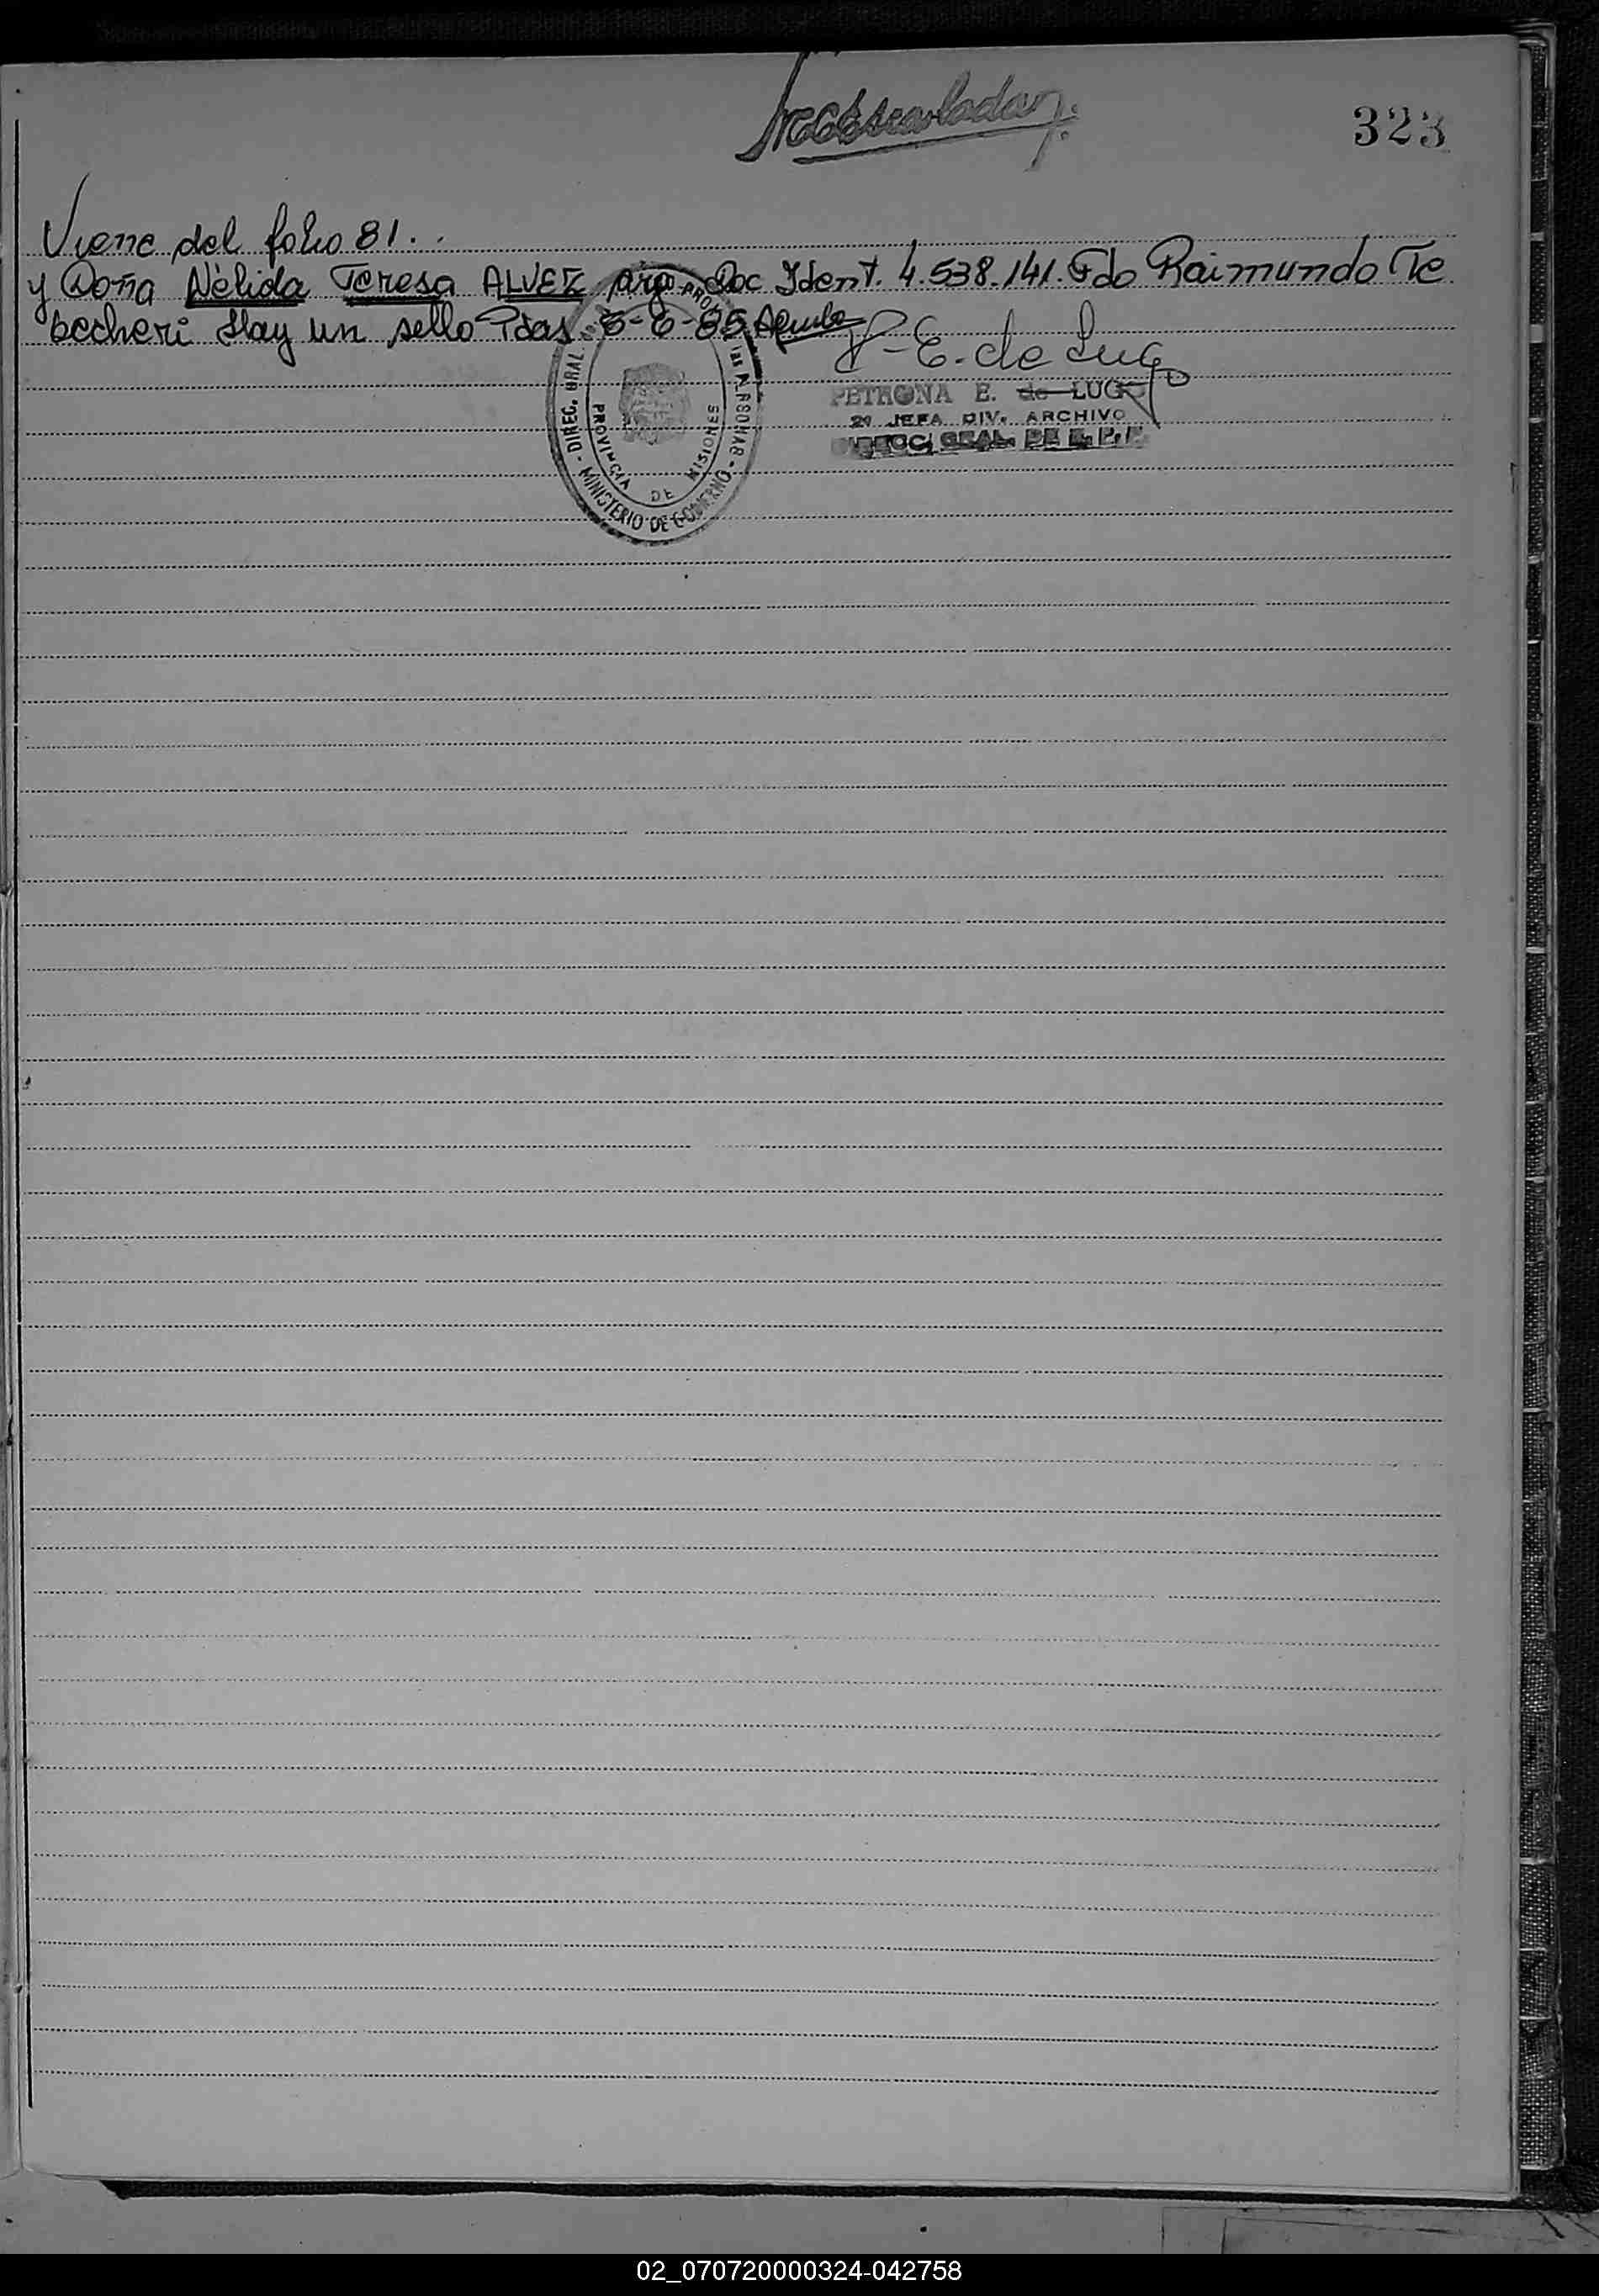 323
Viene del folio 81..
y Doña Nélida Teresa ALVEZ arg. Doc Ident. 4.538.141. Fdo Raimundo Te
becheri Hay un sello Pdas 5-6-85
P-E. de Lugo
PETRONA E. de LUGO
2ª JEFA DIV. ARCHIVO
DIREC. GRAL. DE
DIREC. GRAL.
PROVINCIA DE MISIONES
MINISTERIO DE GOBIERNO
02_070720000324-042758